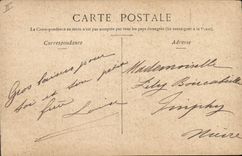 CARTE POSTALE
La Correspondance au recto n'est pas acceptée par tous les pays étrangers (Se renseigner à la Poste)
Correspondance
Adresse
Gros baisers pour
toi et ton petit
frère Louise
Mademoiselle
Imphy
Nièvre